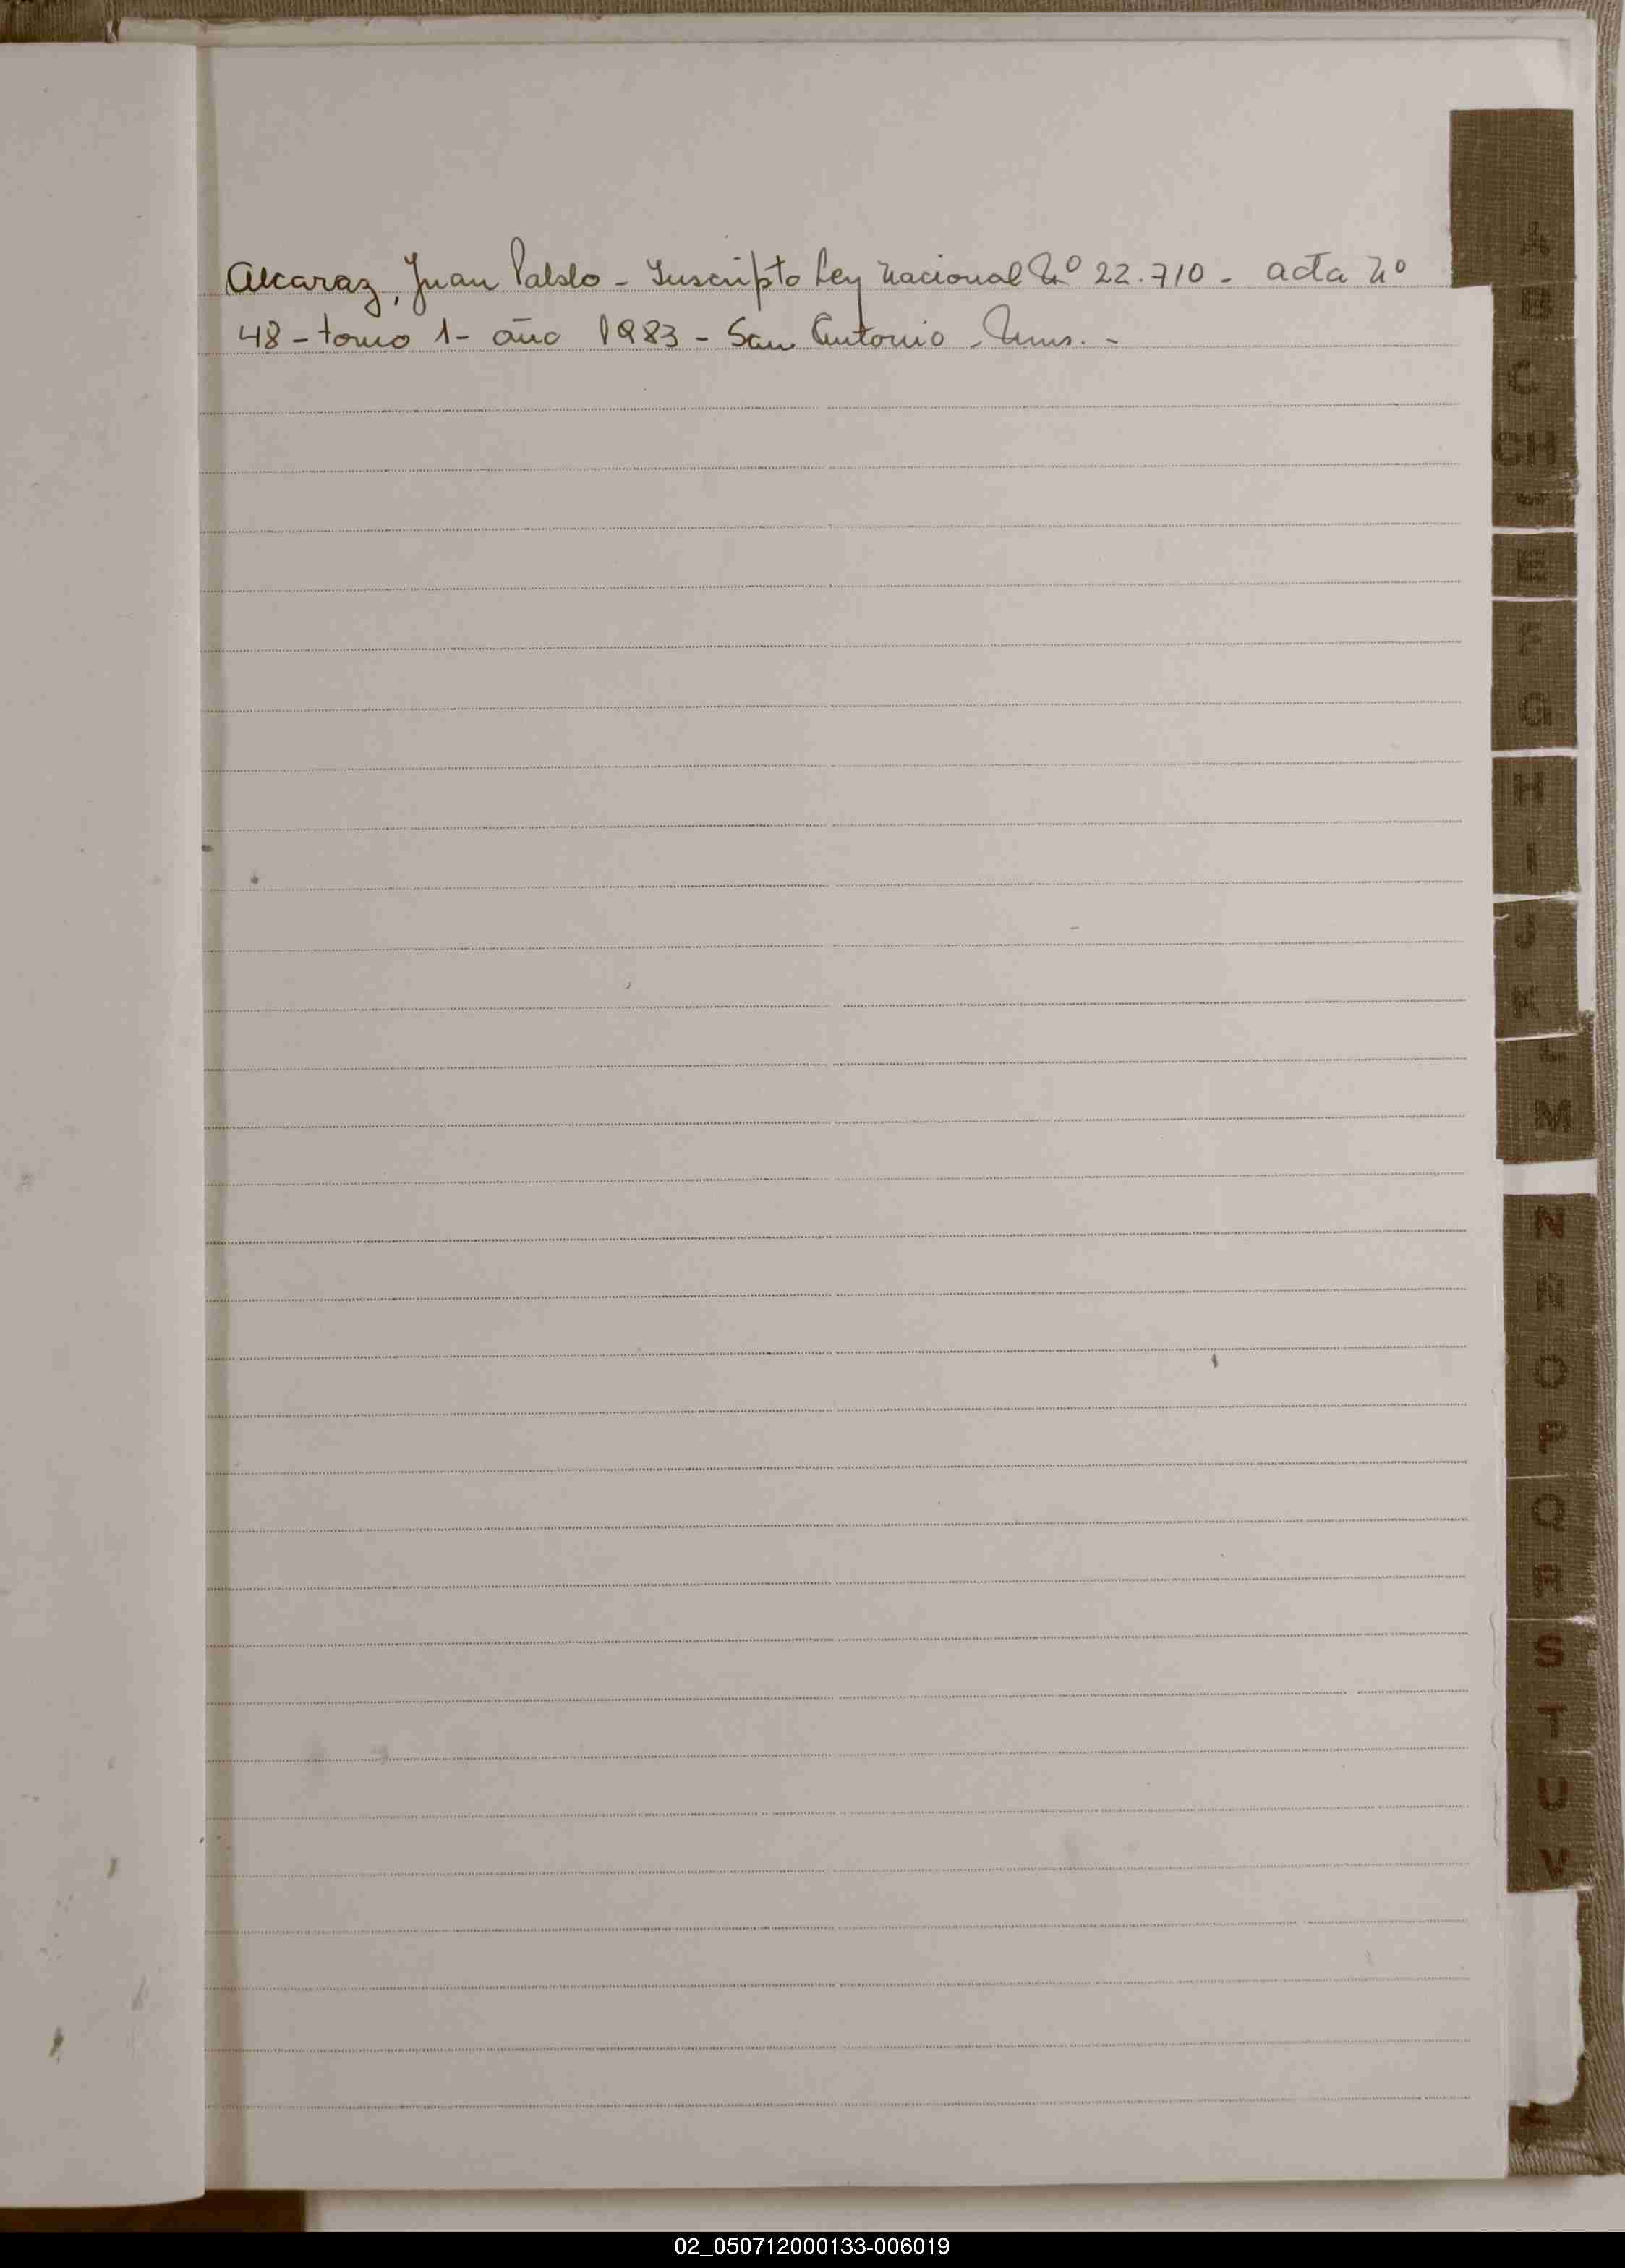 Alcaraz, Juan Pablo - Inscripto Ley Nacional Nº 22.710 - acta Nº
48 - tomo 1 - año 1983 - San Antonio - Mnes. -
A
B
C
CH
E
F
G
H
I
J
K
L
M
N
Ñ
O
P
Q
R
S
T
U
V
Z
02_050712000133-006019